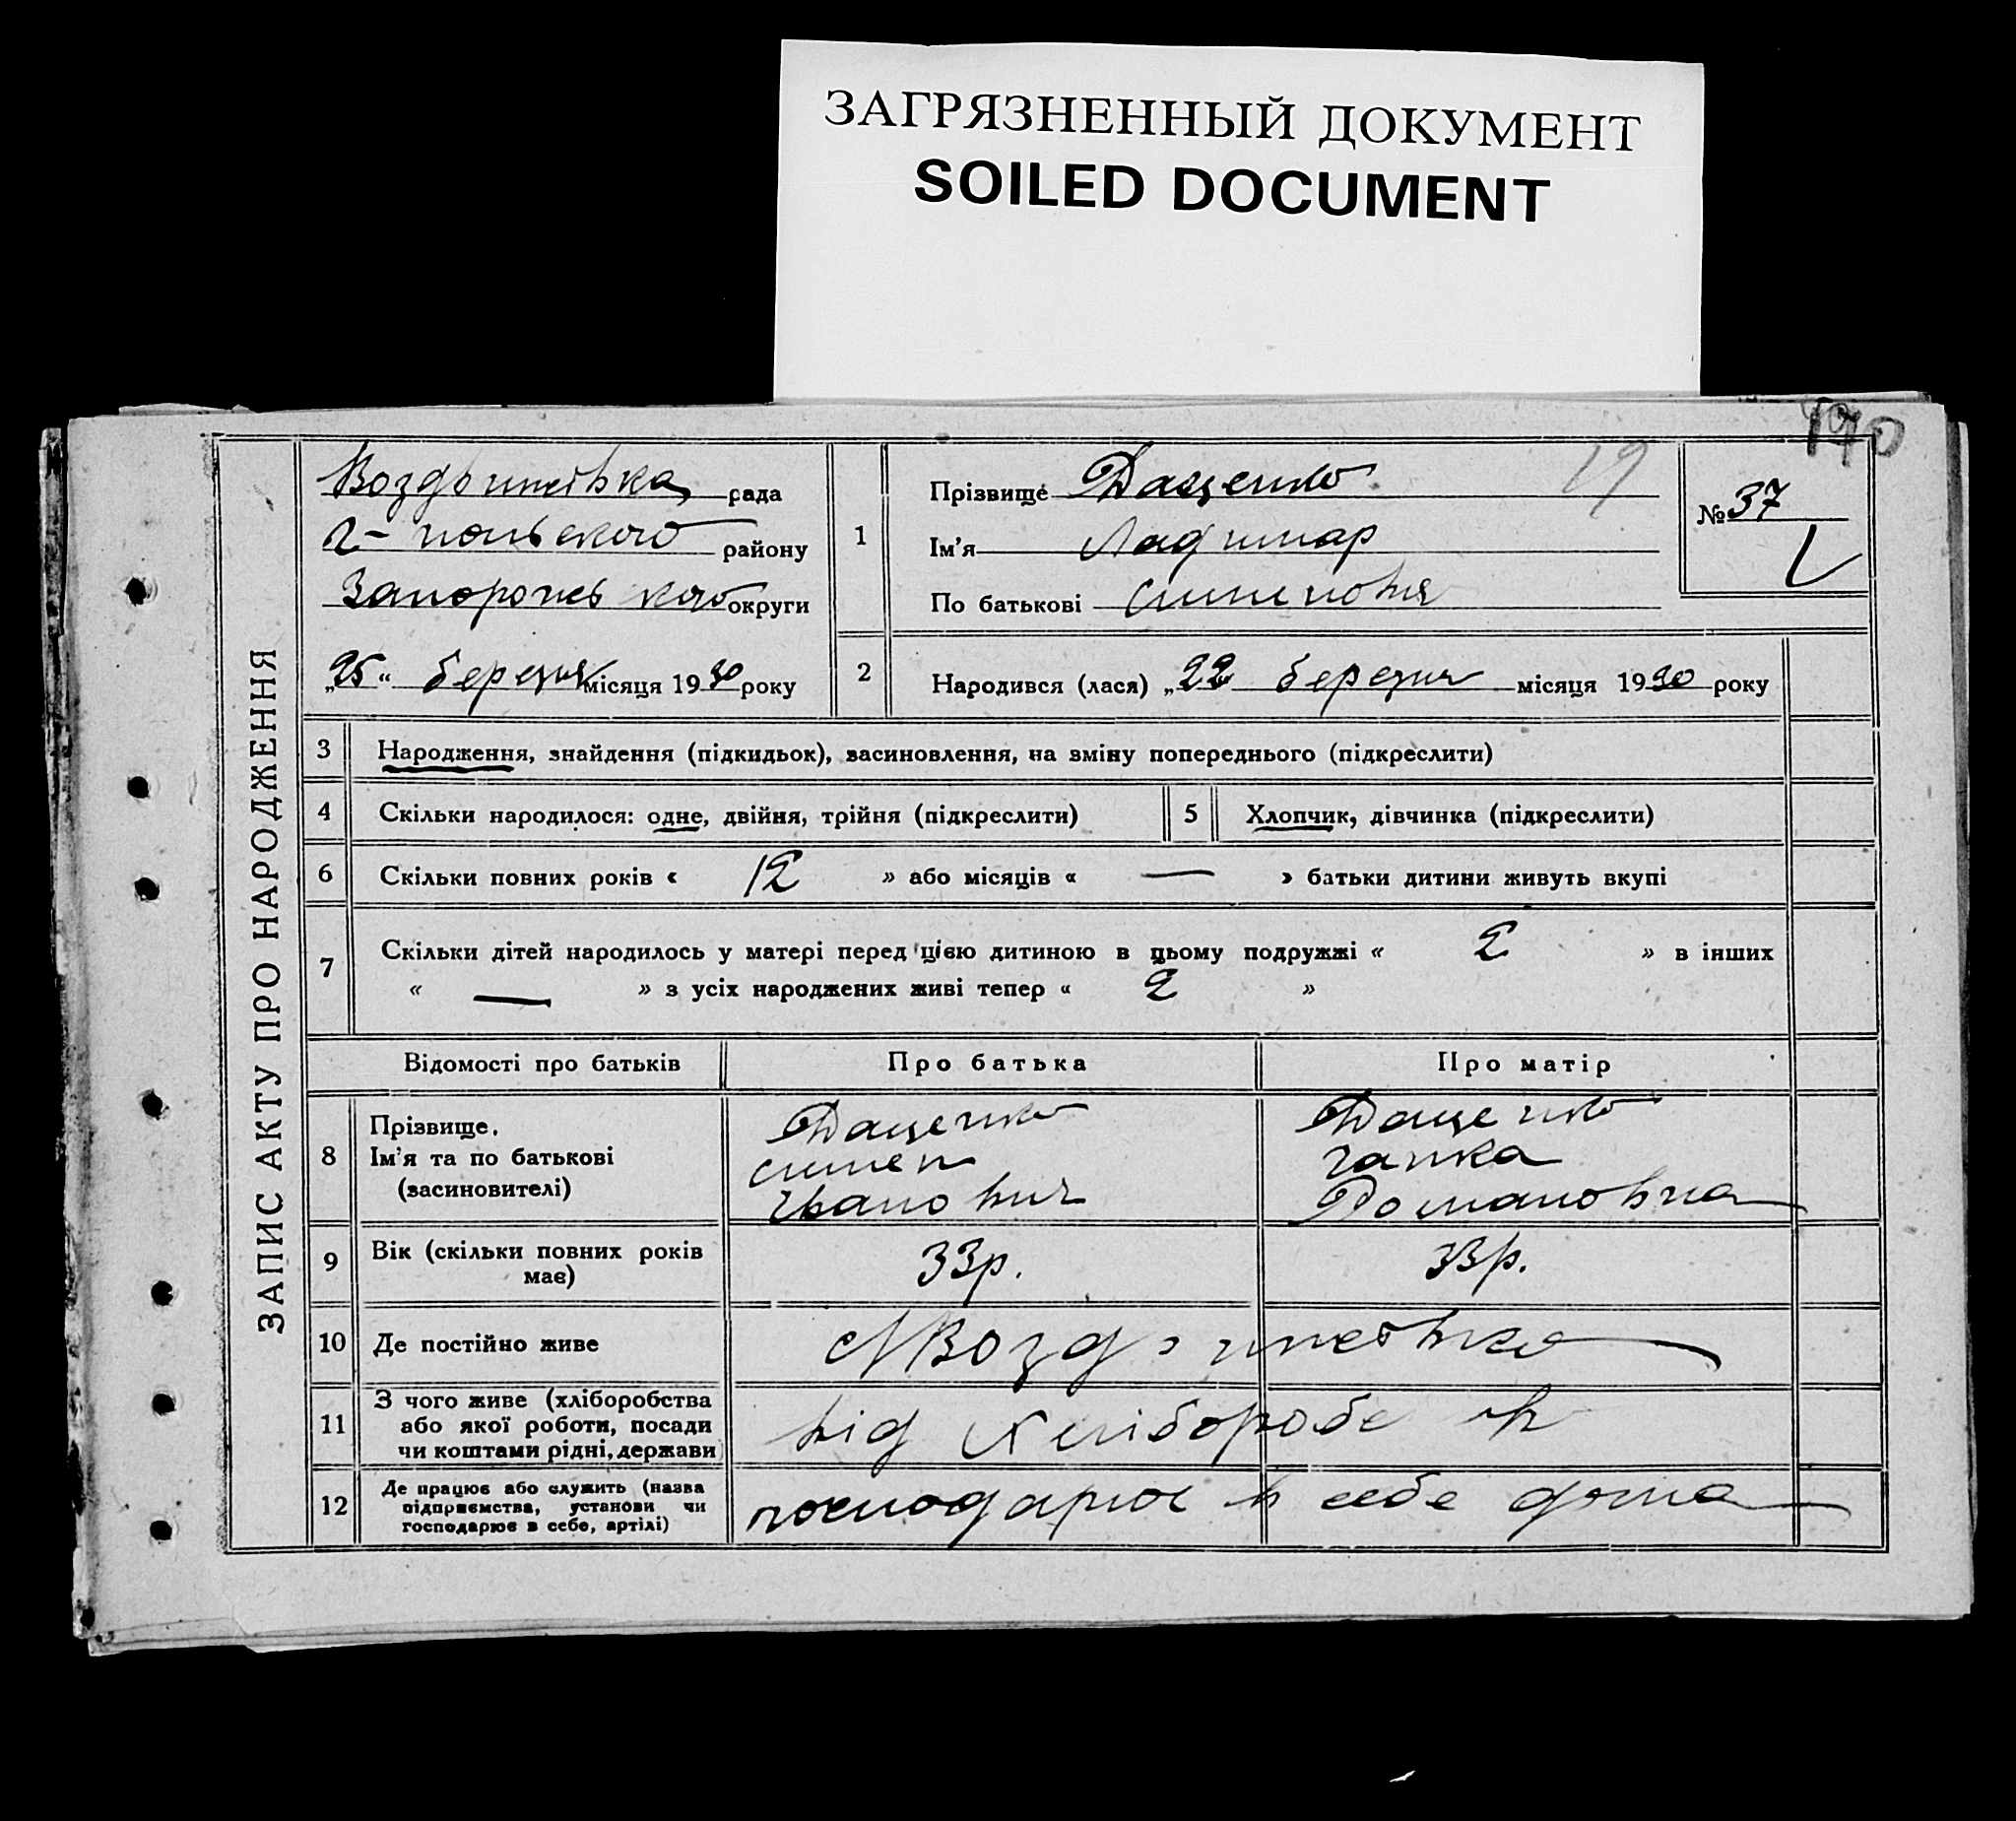 ЗАГРЯЗНЕННЫЙ ДОКУМЕНТ
SOILED DOCUMENT
190
ЗАПИС АКТУ ПРО НАРОДЖЕННЯ
Воздвижевка рада
Г-польського району
Запорожського округи
„25“ березня місяця 1930 року
1
Прізвище Даценко
19
Ім'я Ладимар
По батькові
№ 37
2 Народився (лася) „22 березня місяця 1930 року
3 Народження, знайдення (підкидьок), засиновлення, на зміну попереднього (підкреслити)
4 Скільки народилося: одне, двійня, трійня (підкреслити)
5 Хлопчик, дівчинка (підкреслити)
6 Скільки повних років « 12 » або місяців « — » батьки дитини живуть вкупі
7 Скільки дітей народилось у матері перед цією дитиною в цьому подружжі « 2 » в інших
« — » з усіх народжених живі тепер « 2 »
Відомості про батьків
Про батька
Про матір
8 Прізвище,
Ім'я та по батькові
(засиновителі)
Даценко
Іванович
Даценко
Ганка
Романовна
9 Вік (скільки повних років
має)
33р.
33р.
10 Де постійно живе
11 З чого живе (хліборобства
або якої роботи, посади
чи коштами рідні, держави)
від
12 Де працює або служить (назва
підприємства, установи чи
господарює в себе, артілі)
господарює в себе дома